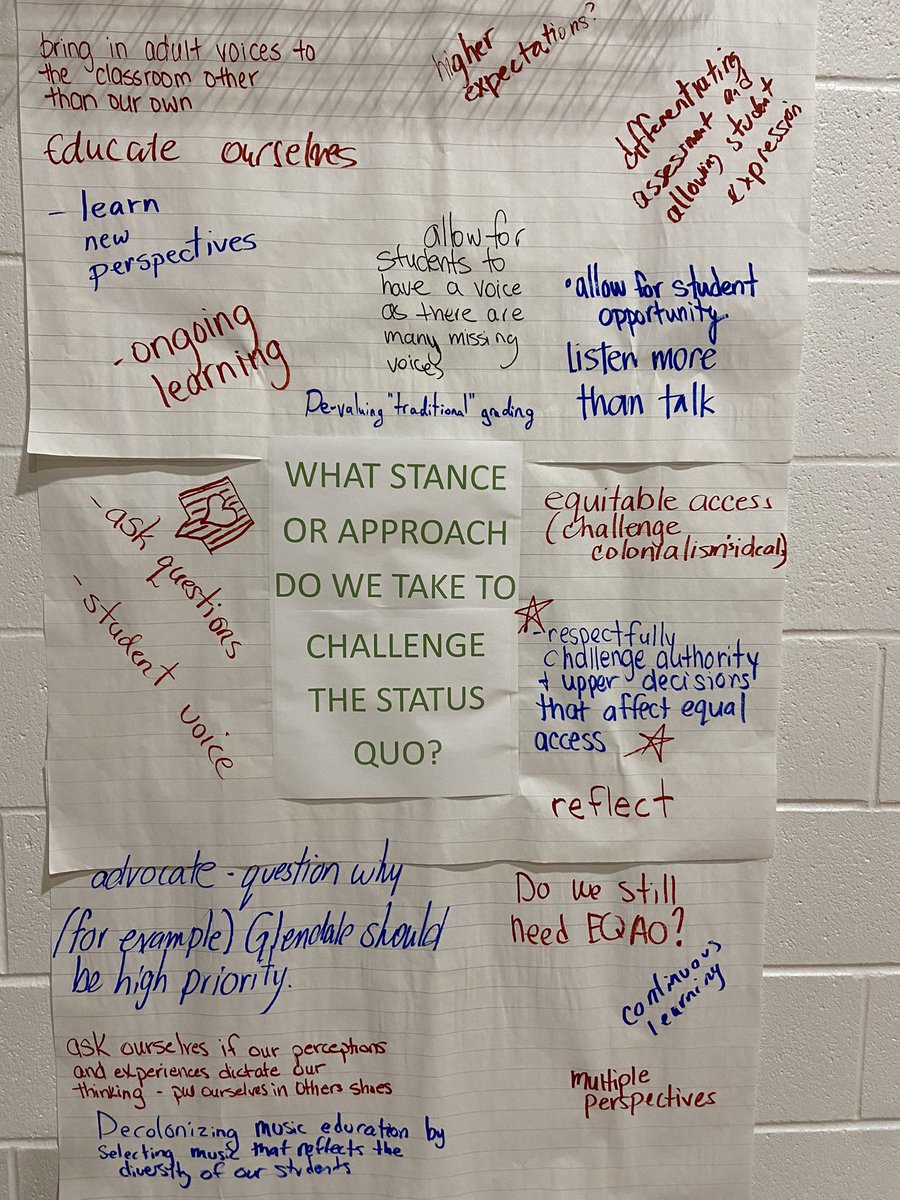 bring in adult voices to
the classroom other
than our own
higher
expectations?
differentiating
assessment and
allowing student
expression
Educate ourselves
- learn
new
perspectives
allow for
students to
have a voice
as there are
many missing
voices
• allow for student
opportunity.
listen more
than talk
- ongoing
learning
De-valuing "traditional" grading
WHAT STANCE
OR APPROACH
DO WE TAKE TO
CHALLENGE
THE STATUS
QUO?
- ask questions
- student voice
equitable access
(challenge
colonialism's ideals)
- respectfully
challenge authority
+ upper decisions
that affect equal
access
reflect
advocate - question why
(for example) Glendale should
be high priority.
Do we still
need EQAO?
continuous
learning
ask ourselves if our perceptions
and experiences dictate our
thinking - put ourselves in others shoes
multiple
perspectives
Decolonizing music education by
selecting music that reflects the
diversity of our students